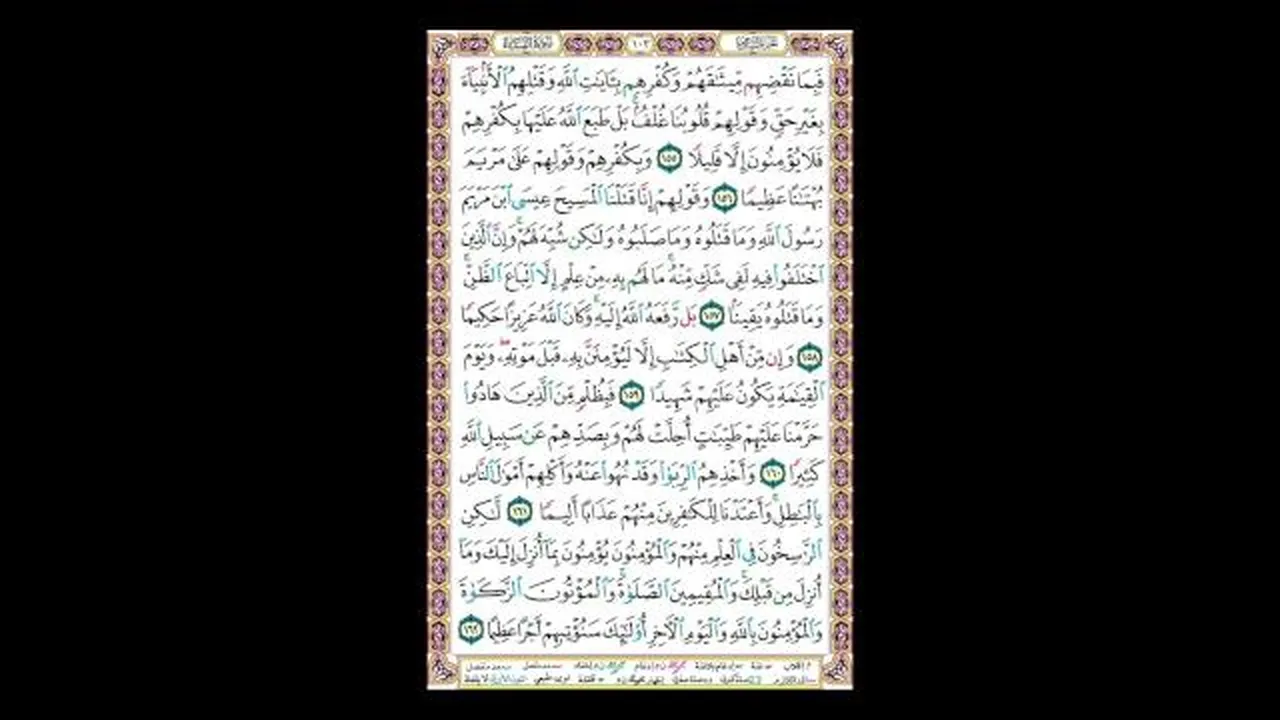 سورة النساء ١٠٣ الجزء السادس
فَبِمَا نَقْضِهِم مِّيثَـٰقَهُمْ وَكُفْرِهِم بِـَٔايَـٰتِ ٱللَّهِ وَقَتْلِهِمُ ٱلْأَنۢبِيَآءَ
بِغَيْرِ حَقٍّ وَقَوْلِهِمْ قُلُوبُنَا غُلْفٌۢ ۚ بَلْ طَبَعَ ٱللَّهُ عَلَيْهَا بِكُفْرِهِمْ
فَلَا يُؤْمِنُونَ إِلَّا قَلِيلًا ١٥٥ وَبِكُفْرِهِمْ وَقَوْلِهِمْ عَلَىٰ مَرْيَمَ
بُهْتَـٰنًا عَظِيمًا ١٥٦ وَقَوْلِهِمْ إِنَّا قَتَلْنَا ٱلْمَسِيحَ عِيسَى ٱبْنَ مَرْيَمَ
رَسُولَ ٱللَّهِ وَمَا قَتَلُوهُ وَمَا صَلَبُوهُ وَلَـٰكِن شُبِّهَ لَهُمْ ۚ وَإِنَّ ٱلَّذِينَ
ٱخْتَلَفُوا۟ فِيهِ لَفِى شَكٍّ مِّنْهُ ۚ مَا لَهُم بِهِۦ مِنْ عِلْمٍ إِلَّا ٱتِّبَاعَ ٱلظَّنِّ ۚ
وَمَا قَتَلُوهُ يَقِينًۢا ١٥٧ بَل رَّفَعَهُ ٱللَّهُ إِلَيْهِ ۚ وَكَانَ ٱللَّهُ عَزِيزًا حَكِيمًا
١٥٨ وَإِن مِّنْ أَهْلِ ٱلْكِتَـٰبِ إِلَّا لَيُؤْمِنَنَّ بِهِۦ قَبْلَ مَوْتِهِۦ ۖ وَيَوْمَ
ٱلْقِيَـٰمَةِ يَكُونُ عَلَيْهِمْ شَهِيدًا ١٥٩ فَبِظُلْمٍ مِّنَ ٱلَّذِينَ هَادُوا۟
حَرَّمْنَا عَلَيْهِمْ طَيِّبَـٰتٍ أُحِلَّتْ لَهُمْ وَبِصَدِّهِمْ عَن سَبِيلِ ٱللَّهِ
كَثِيرًا ١٦٠ وَأَخْذِهِمُ ٱلرِّبَوٰا۟ وَقَدْ نُهُوا۟ عَنْهُ وَأَكْلِهِمْ أَمْوَٰلَ ٱلنَّاسِ
بِٱلْبَـٰطِلِ ۚ وَأَعْتَدْنَا لِلْكَـٰفِرِينَ مِنْهُمْ عَذَابًا أَلِيمًا ١٦١ لَّـٰكِنِ
ٱلرَّٰسِخُونَ فِى ٱلْعِلْمِ مِنْهُمْ وَٱلْمُؤْمِنُونَ يُؤْمِنُونَ بِمَآ أُنزِلَ إِلَيْكَ وَمَآ
أُنزِلَ مِن قَبْلِكَ ۚ وَٱلْمُقِيمِينَ ٱلصَّلَوٰةَ ۚ وَٱلْمُؤْتُونَ ٱلزَّكَوٰةَ
وَٱلْمُؤْمِنُونَ بِٱللَّهِ وَٱلْيَوْمِ ٱلْـَٔاخِرِ أُو۟لَـٰٓئِكَ سَنُؤْتِيهِمْ أَجْرًا عَظِيمًا ١٦٢